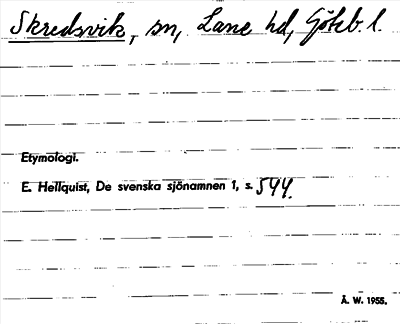 Skredsvik, sn, Lane hd, Göteb. l.
Etymologi.
E. Hellquist, De svenska sjönamnen 1, s. 544.
Å. W. 1955.